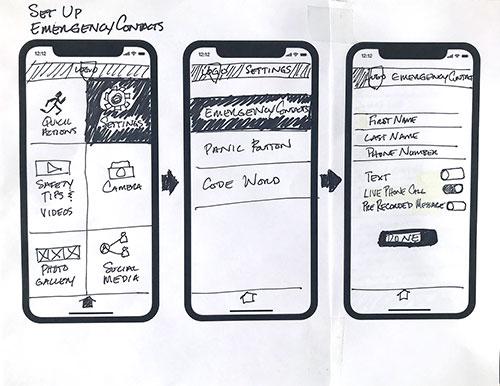 SET UP
EMERGENCY CONTACTS
12:12
LOGO
QUICK
ACTIONS
SETTINGS
SAFETY
TIPS &
VIDEOS
CAMERA
PHOTO
GALLERY
SOCIAL
MEDIA
12:12
LOGO SETTINGS
EMERGENCY CONTACTS
PANIC BUTTON
CODE WORD
12:12
LOGO EMERGENCY CONTACT
FIRST NAME
LAST NAME
PHONE NUMBER
TEXT
LIVE PHONE CALL
PRE RECORDED MESSAGE
DONE